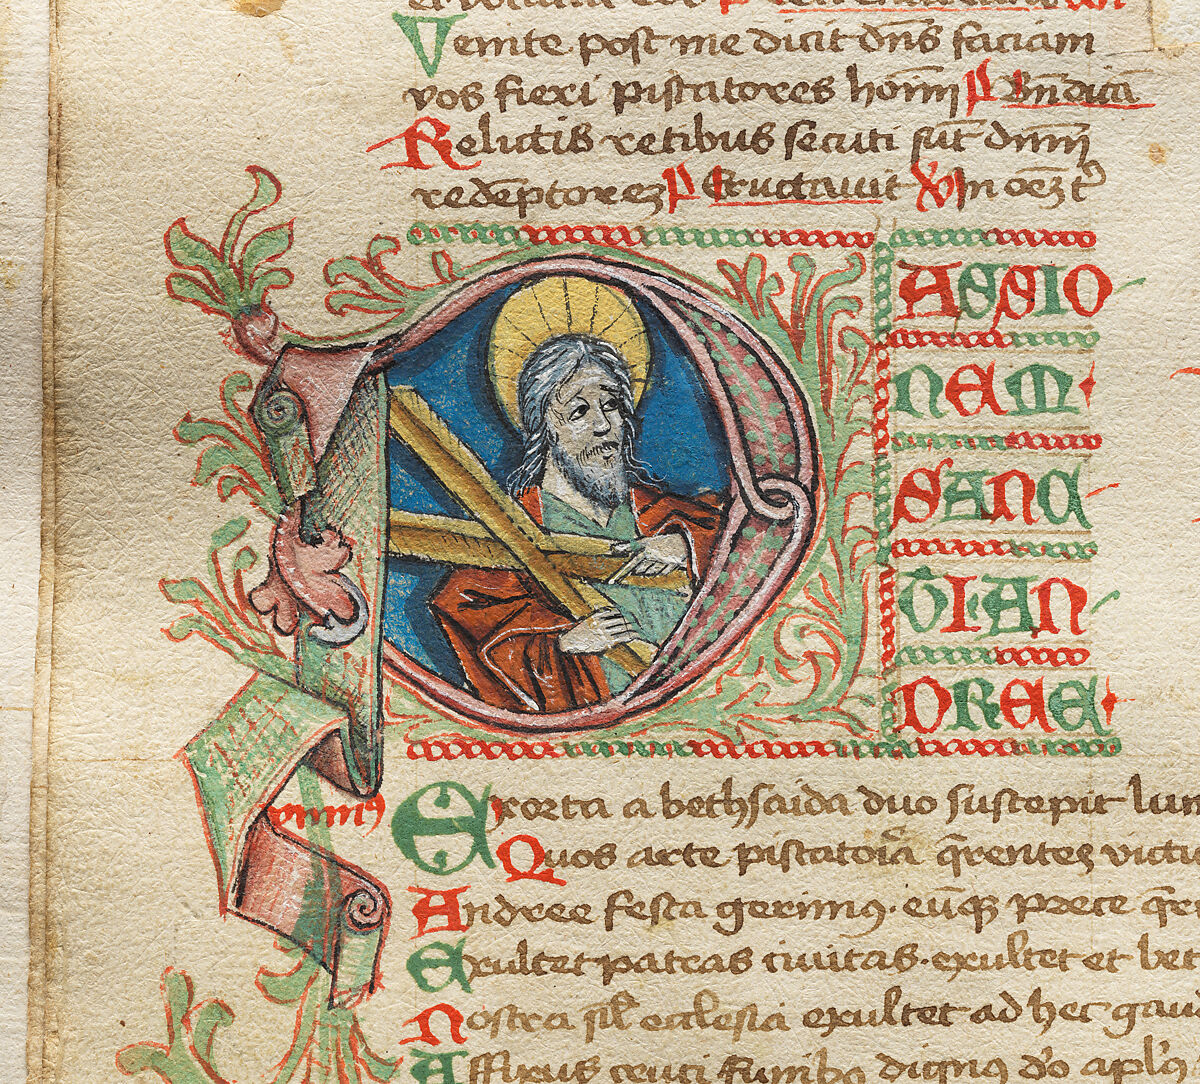 Venite post me dicit dñs faciam
vos fieri piscatores homĩn P Bñdicã
Relictis retibus secuti sũt dñm
redẽptorem P Eructavit In oẽz tr̃
P ASSIO
NEM
SANC
TI AN
DREE
Exorta a bethsaida duo suscepit lum
Quos arte piscatoria q̃rentes victu
Andree festa gerimus. eũq prece q̃re
Exultet patras civitas. exultet et bet
Nostra sil̃ ecclesia exultet ad hec gau
Affixus cruci funibus dignus do aplus